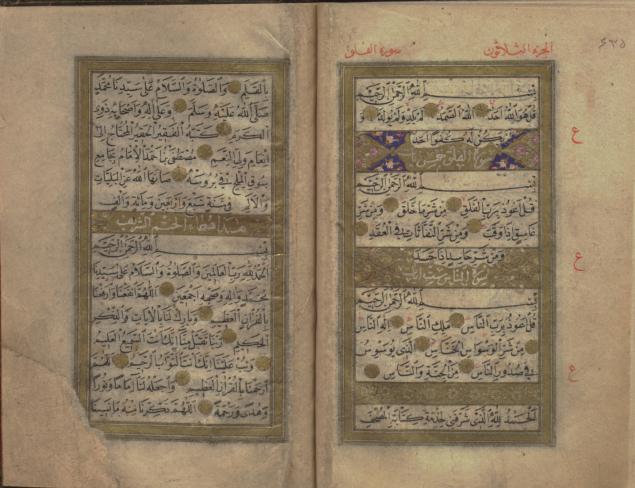 الجزء الثلاثون
سورة الفلق
٤٣٥
بسم الله الرحمن الرحيم
قل هو الله احد الله الصمد لم يلد ولم يولد و
لم يكن له كفوا احد
سورة الفلق خمس
بسم الله الرحمن الرحيم
قل اعوذ برب الفلق من شر ما خلق ومن شر
غاسق اذا وقب ومن شر النفاثات في العقد
ومن شر حاسد اذا حسد
سورة الناس ست ايات
بسم الله الرحمن الرحيم
قل اعوذ برب الناس ملك الناس اله الناس
من شر الوسواس الخناس الذى يوسوس
فى صدور الناس من الجنة والناس
الحمد لله الذى شرفنى لخدمة كتابة المصحف
ع
ع
ع
بالقلم والصلوة والسلام على سيدنا محمد
صلى الله عليه وسلم وعلى اله واصحابه ذوى
الكرم كتبه الفقير الحقير المحتاج الى
انعام ولى النعم مصطفى بن احمد الامام بجامع
بسوق الملح فى بروسه صانها الله عن البليات
والالم فى سنة سبع واربعين ومائة والف
هذا دعاء الختم الشريف
بسم الله الرحمن الرحيم
الحمد لله رب العالمين والصلوة والسلام على سيدنا
محمد واله وصحبه اجمعين اللهم انفعنا وارفعنا
بالقران العظيم وبارك لنا بالايات والذكر
الحكيم ربنا تقبل منا انك انت السميع العليم
وتب علينا انك انت التواب الرحيم اللهم
ارحمنا بالقران العظيم واجعله لنا اماما ونورا
وهدى ورحمة اللهم ذكرنا منه ما نسينا